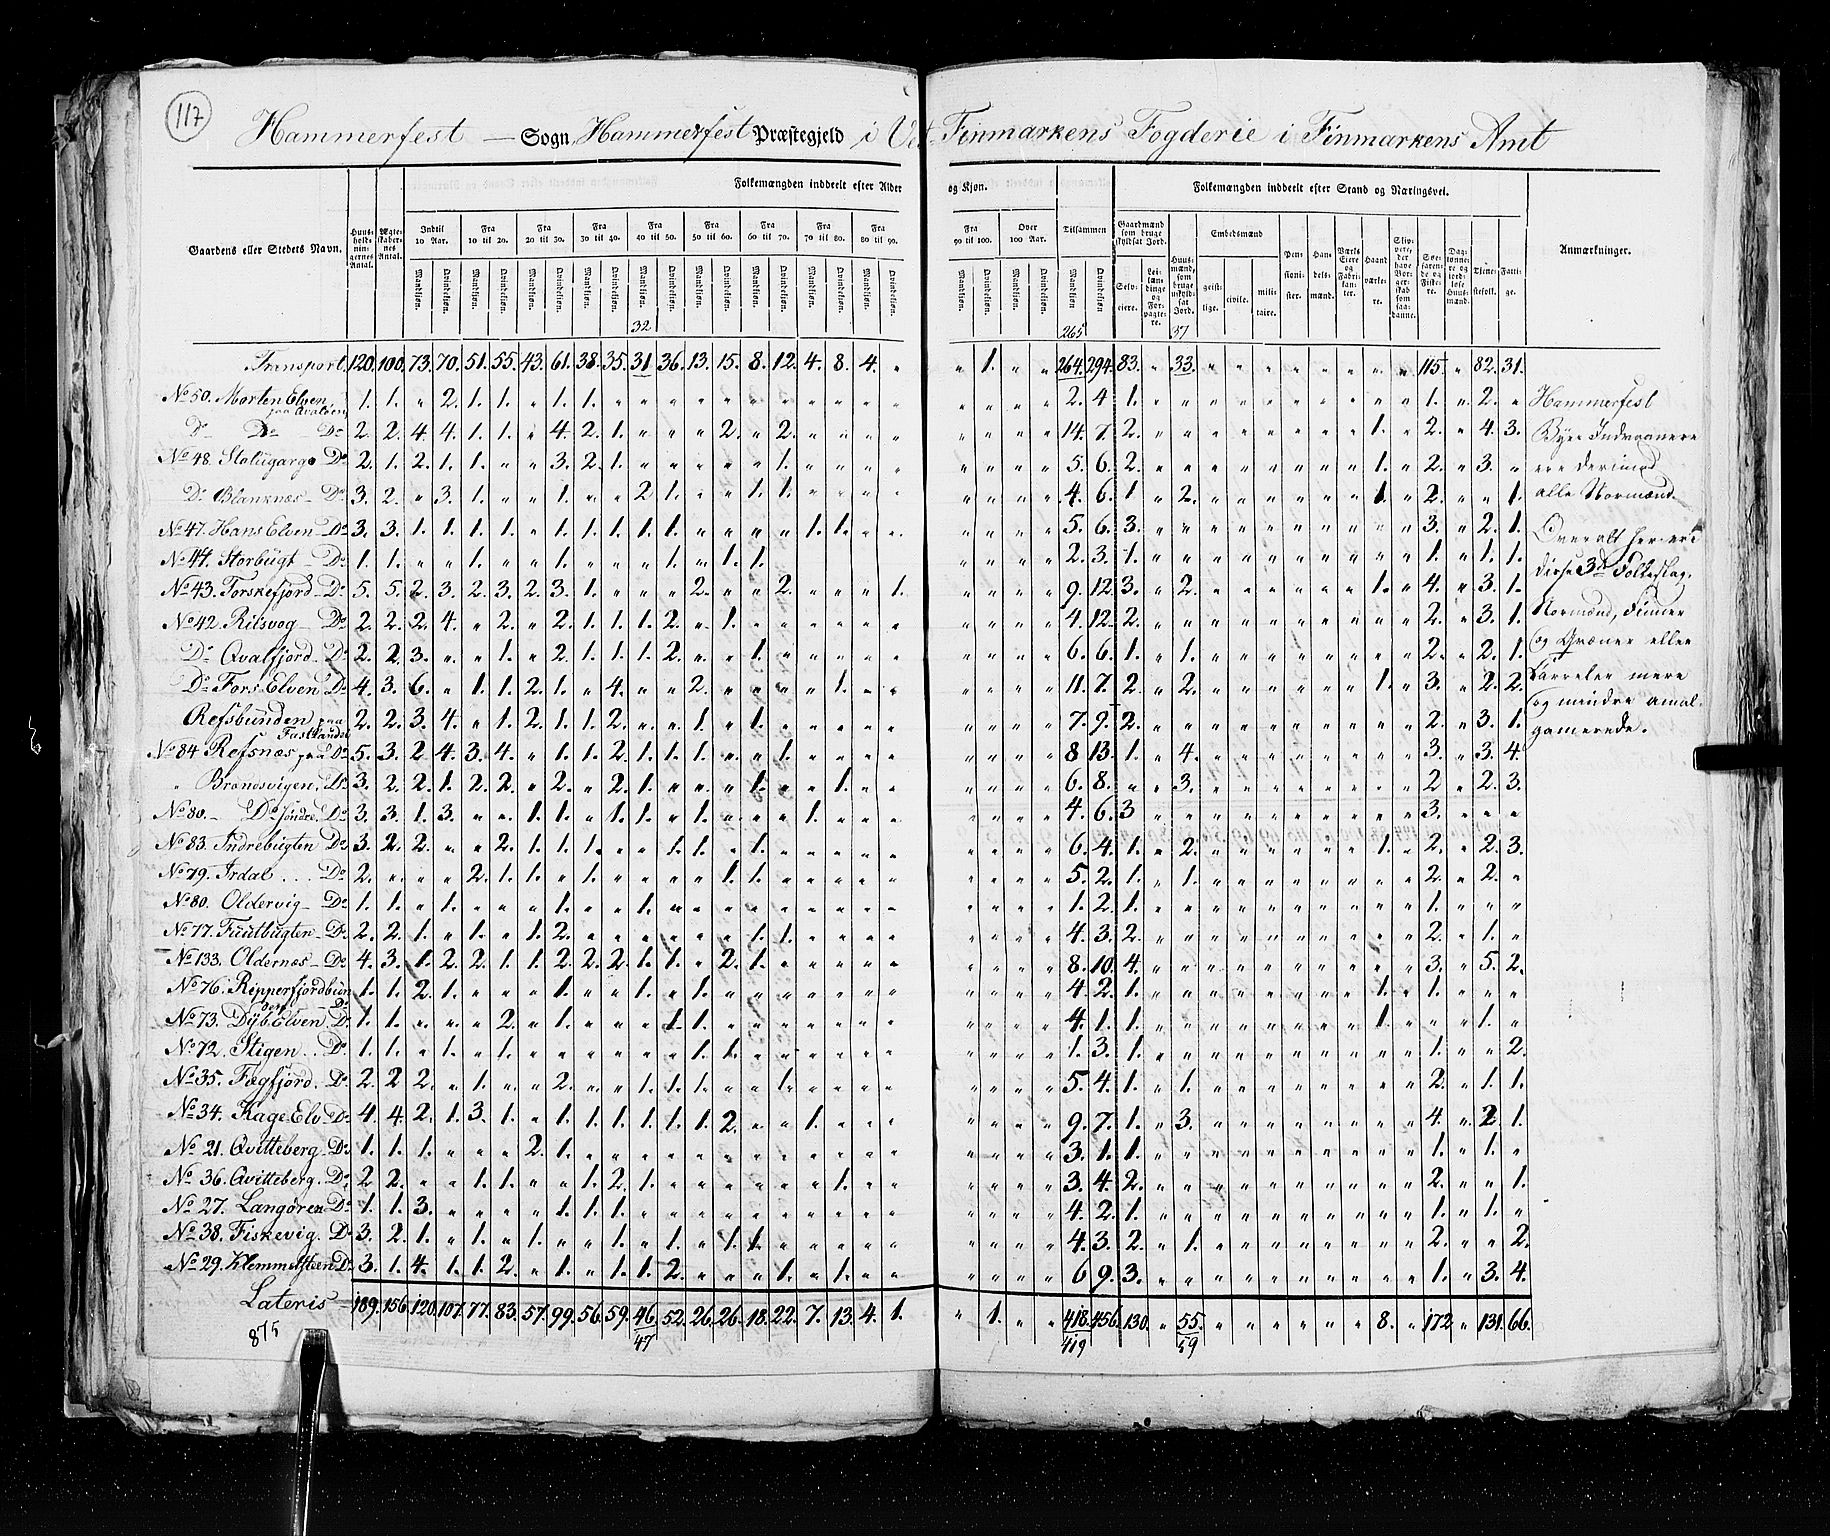 117
Hammerfest — Sogn Hammerfest Præstegjeld i Vest-Finmarkens Fogderie i Finmarkens Amt
Gaardens eller Stedets Navn.
Huusholdningernes Antal.
Ægteskabernes Antal.
Folkemængden inddeelt efter Alder og Kjøn.
Indtil 10 Aar.
Fra 10 til 20.
Fra 20 til 30.
Fra 30 til 40.
Fra 40 til 50.
Fra 50 til 60.
Fra 60 til 70.
Fra 70 til 80.
Fra 80 til 90.
Fra 90 til 100.
Over 100 Aar.
Tilsammen
Mandkjøn. Qvindekjøn.
Folkemængden inddeelt efter Stand og Næringsvei.
Gaardmænd som bruge skyldsat Jord.
Selveiere.
Leilændinge og Forpagtere.
Huusmænd, som bruge uskyldsat Jord.
Embedsmænd
geistlige.
civile.
militaire.
Pensionister.
Handelsmænd.
Værks Eiere og Fabrikanter.
Haandværkere.
Søefarende og Fiskere.
Daglønnere og jordløse Huusmænd.
Tjenestefolk.
Fattige.
Anmærkninger.
32 265 37
Transport 120. 100. 73. 70. 51. 55. 43. 61. 38. 35. 31. 36. 13. 15. 8. 12. 4. 8. 4. " " 1. " " 264. 294. 83. " 33. " " " " " " " " 115. " 82. 31.
No 50. Morten Elven paa Qvaløen 1. 1. " 2. 1. 1. " 1. 1. 2. 4. 1. 1. " 2. "
Do Do Do 2. 2. 4. 4. 1. 1. " 4. 2. 1. " " " 2. " 2. 14. 7. 2. 1. " 2. " 4. 3.
No 48. Do 2. 1. 2. 1. 1. " " 3. 2. 1. 1. 5. 6. 2. 1. " 2. " 3. "
Do Blanknæs Do 3. 2. " 3. 1. " " 1. " " 2. 1. " " 1. 1. 4. 6. 1. " 2. 1. " 2. " " 1.
No 47. Hans Elven Do 3. 3. 1. 1. 1. 1. " 1. 1. 1. 1. 1. " " " " 1. 1. 5. 6. 3. 3. " 2. 1.
No 44. Storbugt Do 1. 1. " " 1. " " 1. " " " 1. " 1. 1. 2. 3. 1. 1. " 1. 1.
No 43. Torskefjord Do 5. 5. 2. 3. 2. 3. 2. 3. 1. " " " 2. " " 2. " " " 1. 9. 12. 3. " 2. 1. " 4. " 3. 1.
No 42. Ritsvog Do 2. 2. 2. 4. " 2. " 2. 1. 1. 1. 2. " 1. 4. 12. 2. 2. " 3. 1.
Do Qvalfjord Do 2. 2. 3. " " 1. " 2. 1. 1. 1. 2. " " 1. 6. 6. 1. " 1. 2. " 2. 1.
Do Fors Elven Do 4. 3. 6. " 1. 1. 2. 1. " 4. " " 2. " " " " 1. 11. 7. 2. " 2. 1. " 3. " 2. 2.
Refsbunden paa Fastlandet 2. 2. 3. 4. " 1. 2. 1. 1. 2. " " 1. " 1. 7. 9. 2. 2. " 3. 1.
No 84 Refsnæs paa Do 5. 3. 2 4. 3. 4. " 1. 1. 2. 1. 1. 1. " " 1. 8 13. 1. " 4. 3. " 3. 4.
" Brandsvigen. Do 3. 2. 2. 1. 2. 2. " 2. " 2. 1. " " " 1. " " 1. 6. 8. " " 3. 2 " 2. 3.
No 80. Do søndre. Do 3. 3. 1. 3. " " 1. 1. " 1. 1. " 1. " " " 1. 4. 6. 3 3. " " "
No 83. Indrebugten Do 3. 2. 2. " " 2. 1. 1. 1. " " 1. 1. " 1. 6. 4. 1. " 2. 1. " 2. " 2. 3.
No 79. Irdal Do 2. " " " 2. 1. 1. " 1. " " " " 1. 1. 5. 2. 1. " 1. 2. " 2. "
No 80. Oldervig Do 1. 1. " 1. " " " 1. " 1. 1. 2. 1. 1. " " "
No 77. Fuutbugten Do 2. 2. 1. " 1. " 1. 2. " " " " " " 1. 1. 4. 3. 2. 2. " 1. "
No 133. Oldernæs Do 4. 3. 1. 2. 2. 1. 1. 2. 2. 2. 1. 1. " 2. 1. 8. 10. 4. 3. " 5. 2.
No 76. Ripperfjordbun Do 1. 1. 2. 1. " " " 1. " 1. " " 1. 4. 2. 1. 1. " 1. " " "
No 73. Dyb.Elven Do 1. 1. " " " 2. " 1. " " " 1. 1. 4. 1. 1. 1. " " " 1. "
No 72. Stigen Do 1. 1. " 1. " 1. " " " " " " 1. 1. 1. 3. 1. 1. " " 2.
No 35. Fægfjord. Do 2. 2 2. " 1. " " 2. " " 1. 1. 1. " " 1. 5. 4. 1. " 1. 2. " 1. 1.
No 34. Kage Elv Do 4. 4. 2. 1. 3. 1. " 1. 1. 1. 1. 1. 1. 2. " " 1. 9. 7. 1. " 3. 4. " 2. 1.
No 21. Qvitteberg Do 1. 1. 1. " " " 2. 1. 3. 1. 1. 1. " 1. "
No 36. Qvitteberg. Do 2 2. " " 1. 1. " " 1. 2. 1. " " " " " " 1. 3. 4. 2. 2. " " 1.
No 27. Langøren Do 1. 1. 3. " " " " 1. 1. 1. 4. 2. 1. 1. " 1. "
No 38. Fiskevig. Do 3. 2. 1. " 1. " 1. " " 1. " 1. " 1. 1. 4. 3. 2. " 1. 2. " " 2.
No 29. Klemmetsteen Do 3. 1. 4. 1. 1. 2. " 1. " 1. 1. 2. " " " 1. " 1. 6 9. 3. 1. " 3. 4.
Lateris 189. 156. 120. 107. 77. 83. 57. 99. 56. 59. 46 52. 26. 26. 18. 22. 7. 13. 4. 1. " 1. " " 418. 456. 130. " 55. " " " " " " 8. " 172 " 131. 66.
875 47 419 59
Hammerfest
Byes Indvaanere
ere derimod
alle Normænd.
Overalt her ere
disse 3de Folkeslag,
Normænd, Finner
og Qvæner eller
Carreler mere
og mindre amal-
gamerede.